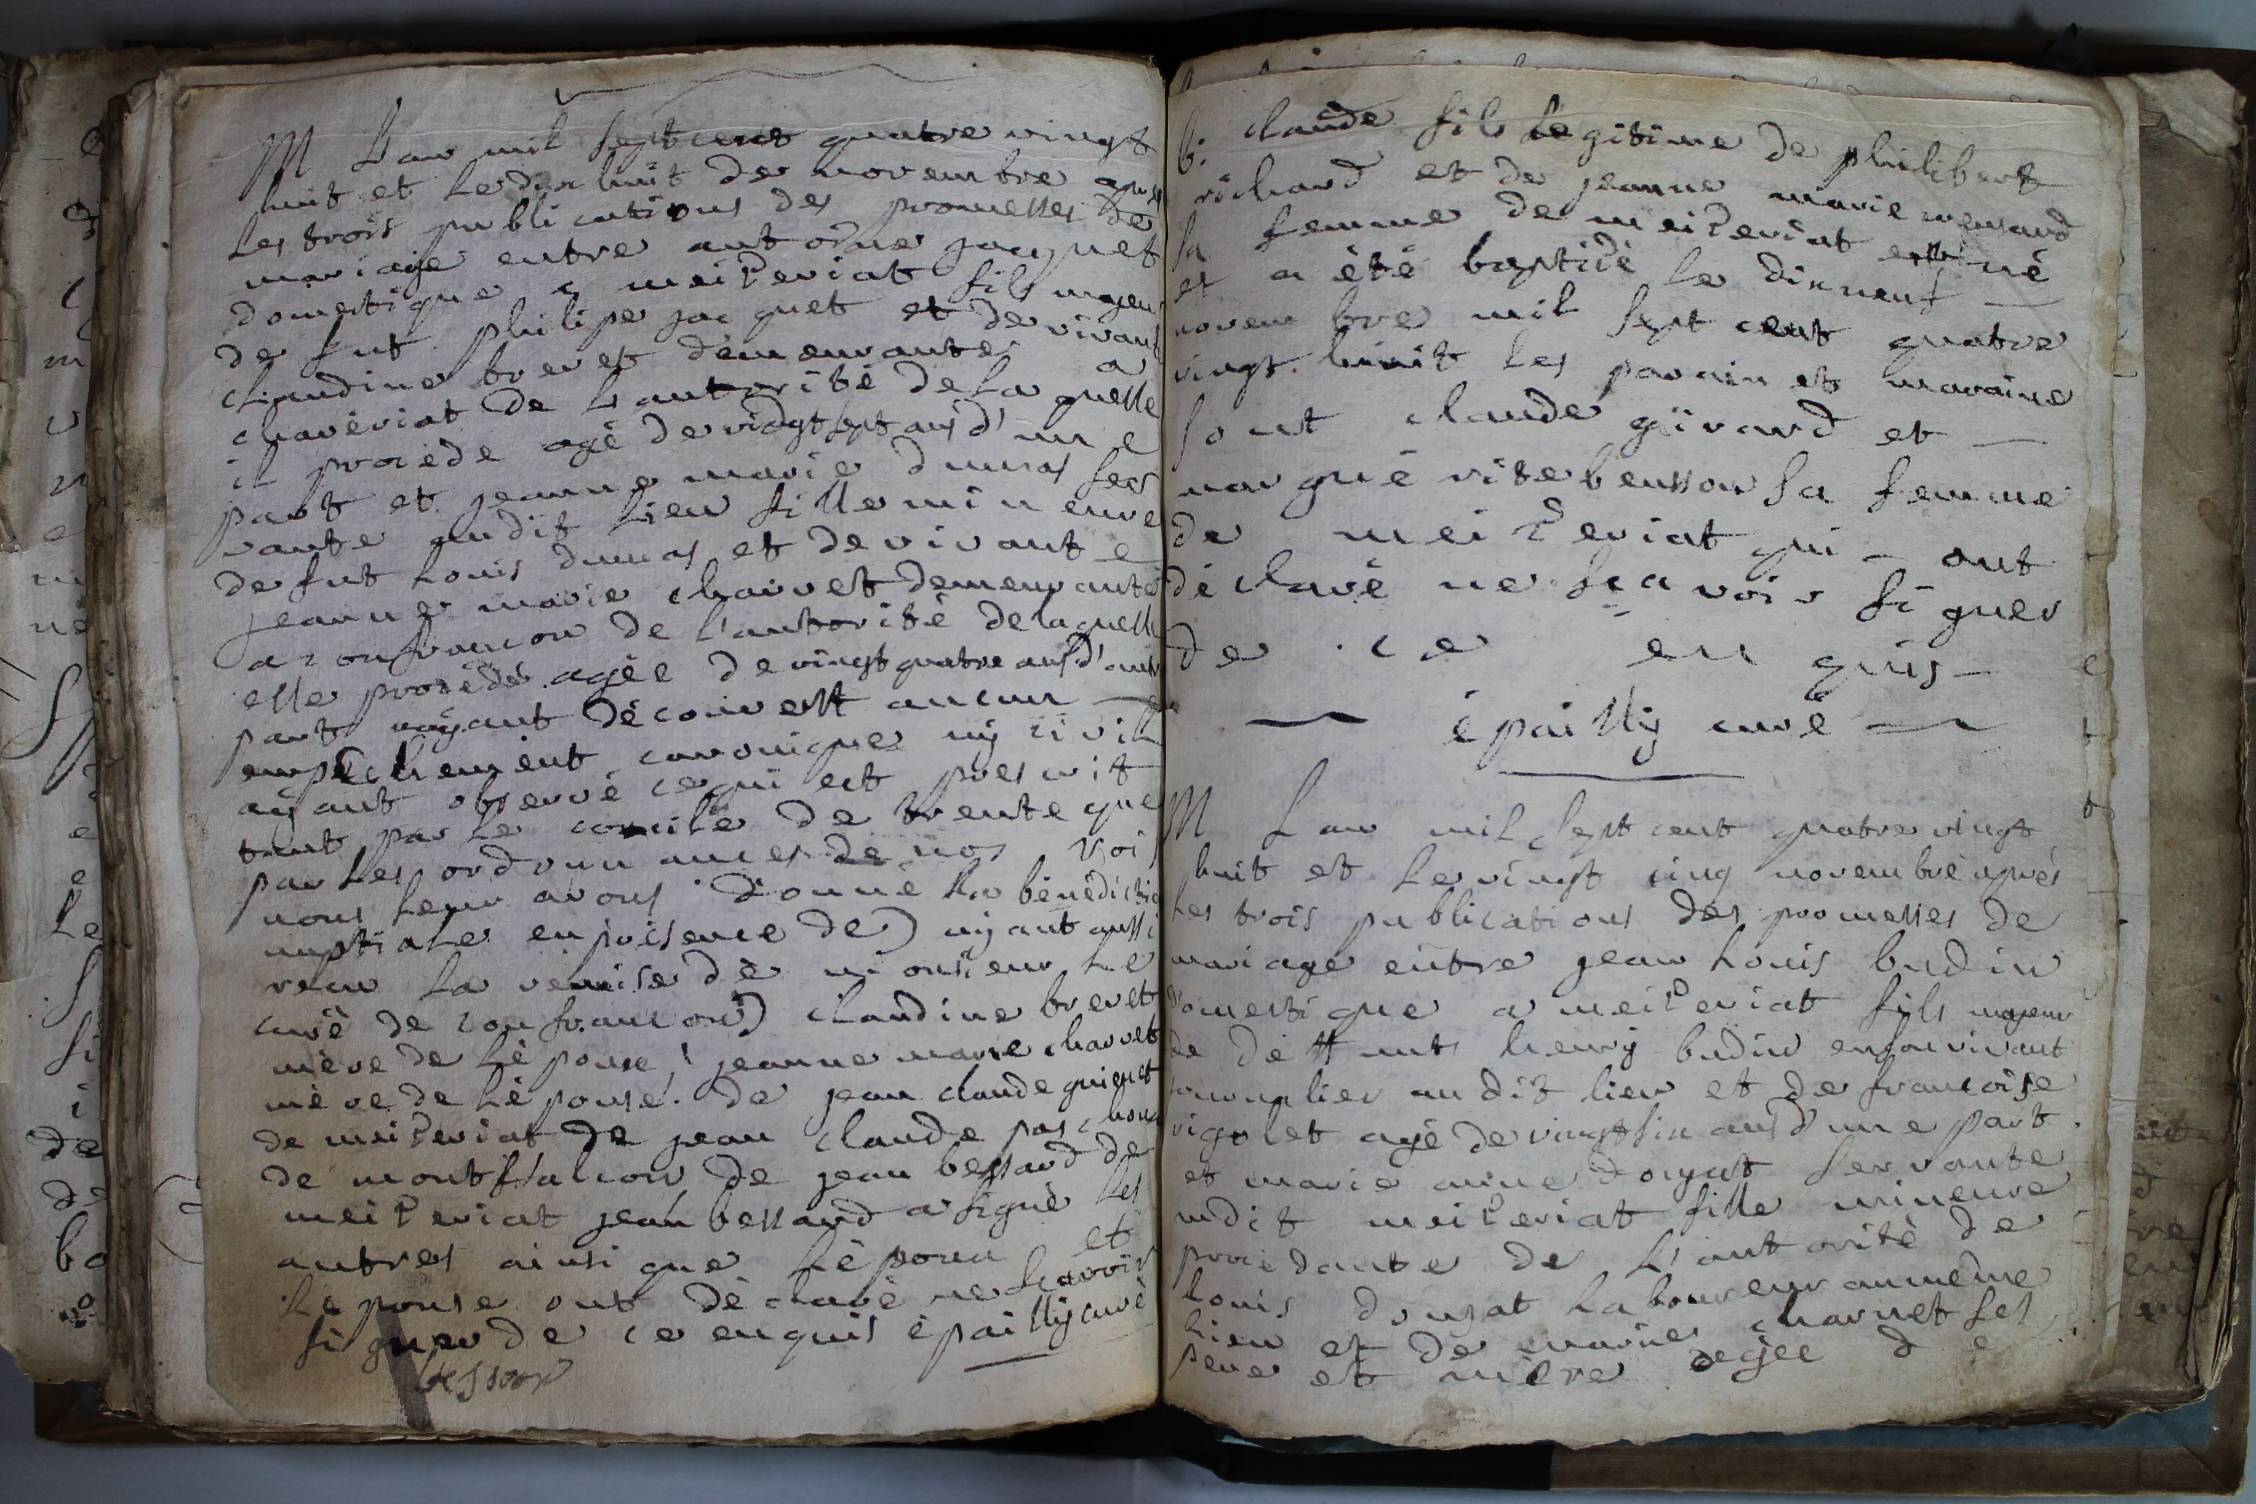 M L'an mil sept cent quatre vingt
huit et le dix huit de novembre apres
les trois publications des promesses de
mariage entre antoine jacquet
domestique a meizeriat fils majeur
de fut philipe jacquet et de vivante
claudine brevet demeurante a
chaveriat de l'autorité de la quelle
il procede agé de vingt sept ans d'une
part et jeanne marie dumas ser
vante audit lieu fille mineure
de fut louis dumas et de vivante
jeanne marie charvet demeurante
a confrancon de l'autorité de laquelle
elle procéde agèe de vingt quatre ans d'autre
part nayant décoûvert aucun
empechement canonique nÿ civil
aÿant observé ce qui est prescrit
tant par le concile de trente que
par les ordonnances de nos rois
nous leur avons donné la bénédiction
nuptiale en présence de) aÿant aussi
recu la remise de monsieur le
curé de confrancon) claudine brevet
mère de l'époux, jeanne marie charvet
mère de l'épouse. de jean claude guienet
de meizeriat de jean claude pachoux
de montfalcon de jean bessard de
meizeriat jean bessard a signé les
autres ainsi que l'époux et
l'épouse ont déclaré ne scavoir
signer de ce enquis épaillÿ curé
bessard
b: claude fils légitime de philibert
richard et de jeanne marie
sa femme de meizeriat est né
et a été baptizé le dix neuf
novembre mil sept cent quatre
vingt huit les parain et maraine
sont claude gûrard et
margué rite bensson sa femme
de meizeriat qui ont
déclaré ne scavoir signer
de ce enquis
épaillÿ curé
M L'an mil sept cent quatre vingt
huit et le vingt cinq novembre après
les trois publications des promesses de
mariage entre jean louis budin
domestique a meizeriat fils majeur
de deffunt henrÿ budin en son vivant
journalier audit lieu et de francoise
rigolet agé de vingt six ans d'une part
et marie anne donjat servante
audit meizeriat fille mineure
procedante de l'autorité de
louis donjat laboureur au même
lieu et de marie charvet ses
pere et mère agée de